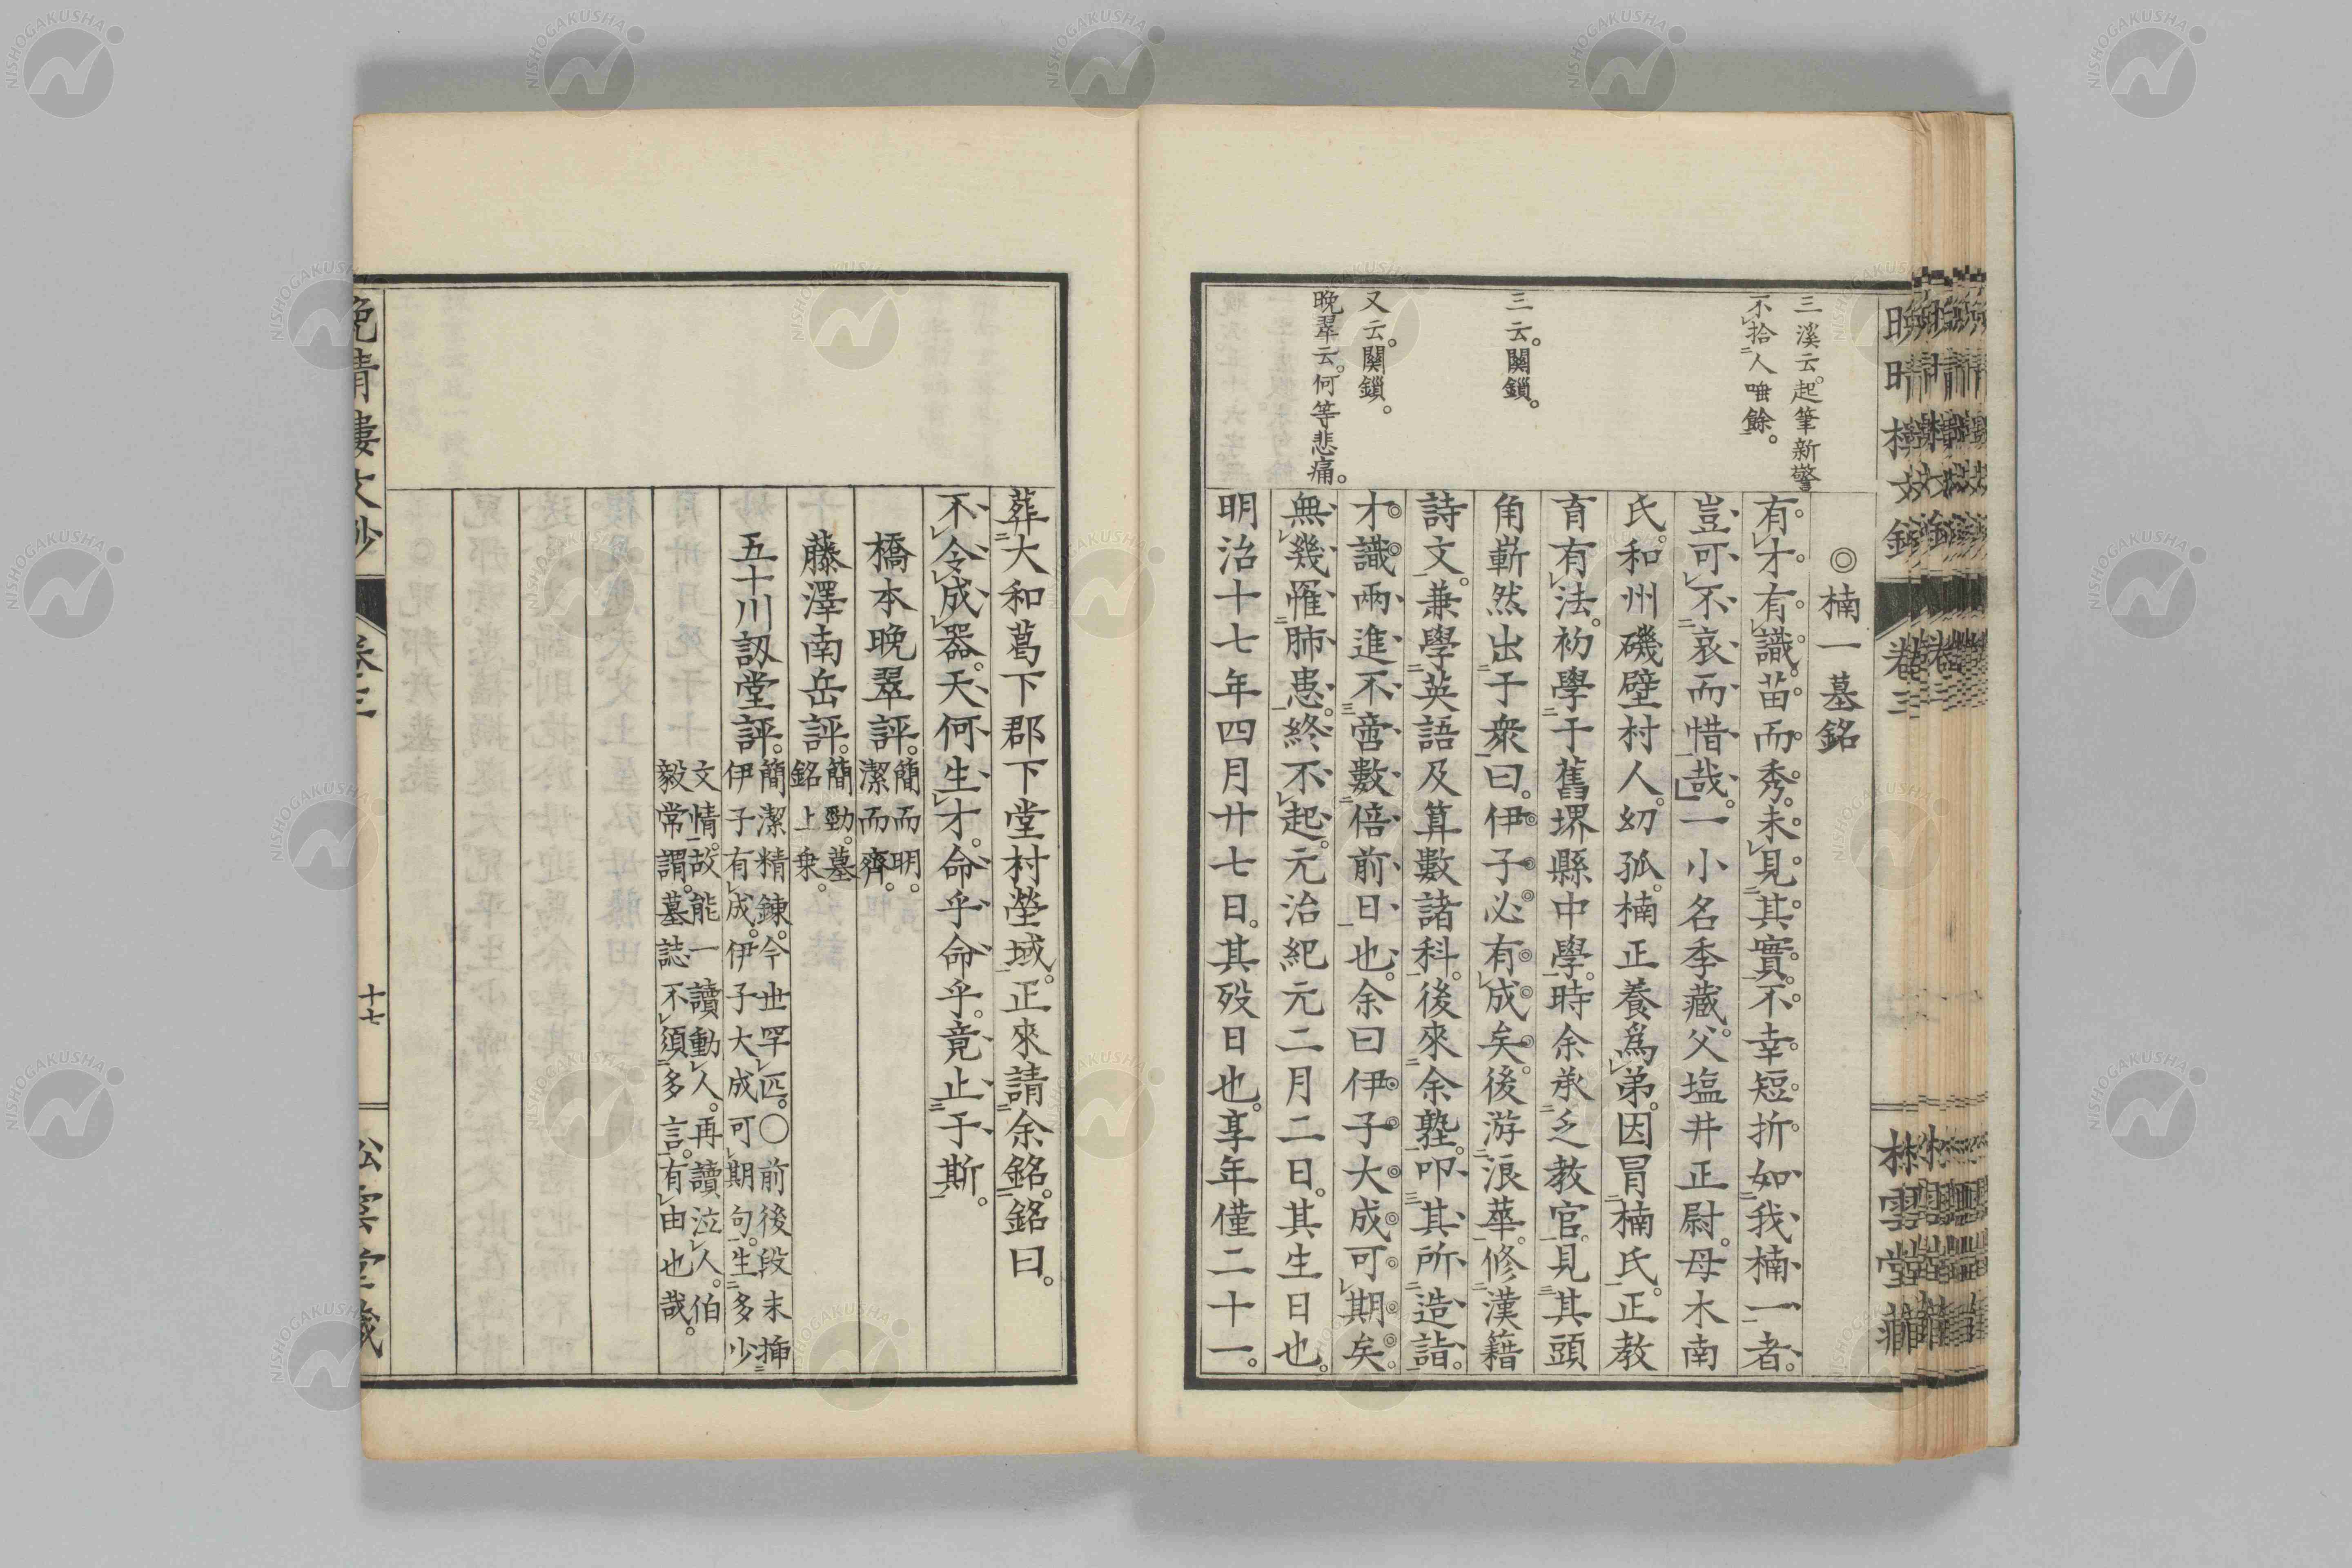 三溪云。起筆新警
不拾人唾餘。
三云。關鎖。
又云。關鎖。
晚翠云。何等悲痛。
◎楠一墓銘
有才有識。苗而秀。未見其實。不幸短折。如我楠一者。
豈可不哀而惜哉。一小名季藏。父塩井正尉。母木南
氏。和州磯壁村人。幼孤。楠正養爲弟。因冒楠氏。正教
育有法。初學于舊堺縣中學。時余承乏教官。見其頭
角嶄然出于衆。曰。伊子必有成矣。後游浪華。修漢籍
詩文。兼學英語及算數諸科。後來余塾。叩其所造詣。
才識兩進。不啻數倍前日也。余曰伊子大成可期矣。
無幾罹肺患。終不起。元治紀元二月二日。其生日也。
明治十七年四月廿七日。其歿日也。享年僅二十一。
葬大和葛下郡下堂村塋域。正來請余銘。銘曰。
不令成器。天何生才。命乎命乎。竟止于斯。
橋本晚翠評。簡而明。
潔而齊。
藤澤南岳評。簡勁。墓
銘上乘。
五十川訒堂評。簡潔精鍊。今世罕匹。〇前後段末插
伊子有成。伊子大成可期句。生多少
文情。故能一讀動人。再讀泣人。伯
毅常謂。墓誌不須多言。有由也哉。
晚晴樓文鈔
卷三
十七
松雲堂藏
NISHOGAKUSHA